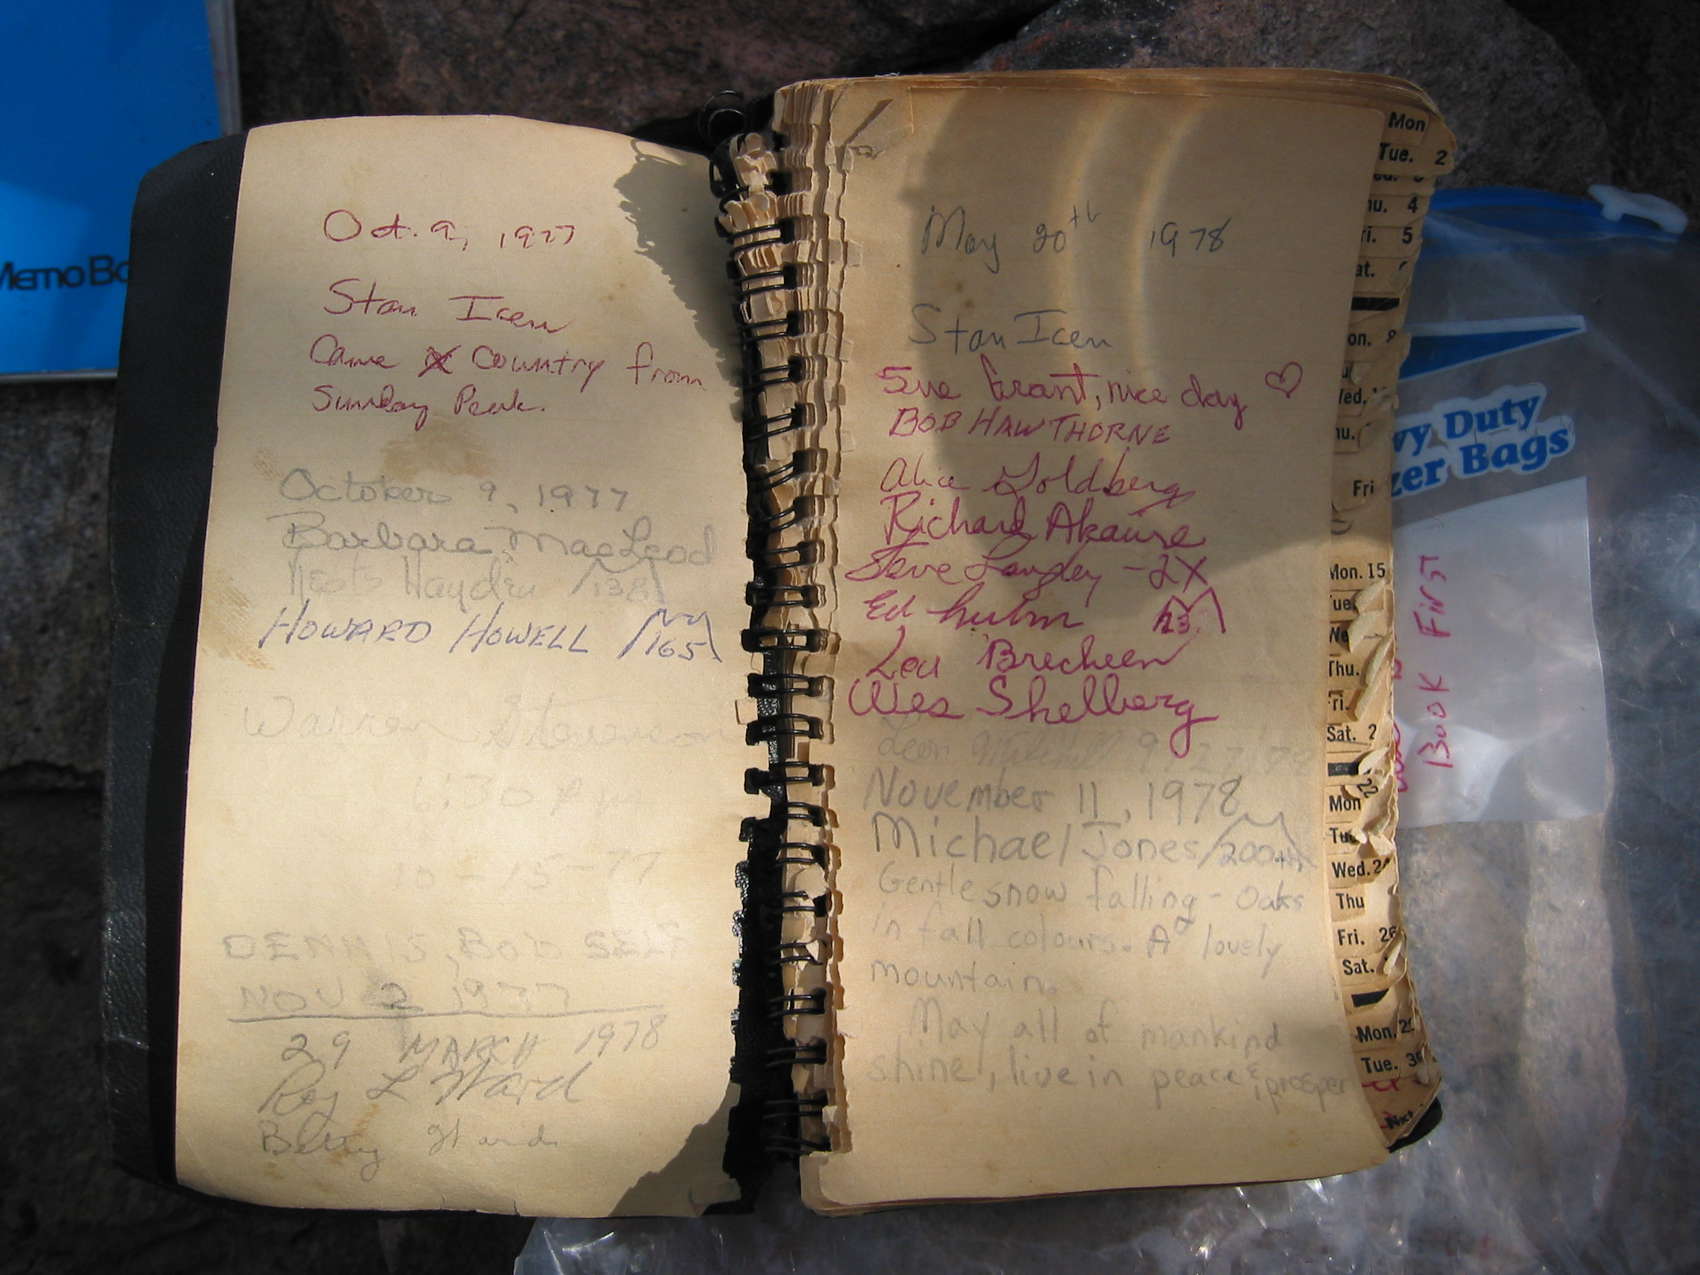 Memo Bo
Oct. 9, 1977
Stan Icen
Came X Country from
Sunday Peak.
October 9, 1977
Barbara MacLeod
Hayden 138
HOWARD HOWELL 165
Warren Stevenson
6:30 PM
10-15-77
DENNIS, BOB SELF
NOV 2 1977
29 MARCH 1978
Roy L Ward
Betty
May 20th 1978
Stan Icen
Sue Grant, nice day ♡
BOB HAWTHORNE
Alice Goldberg
Richard Akawie
Steve Langley - 2X
Ed
Lou Brecheen
Wes Shelberg
Leon
November 11, 1978
Michael Jones 200th
Gentle snow falling - Oaks
in fall colours. A lovely
mountain.
May all of mankind
shine, live in peace & prosper
Mon
Tue. 2
4
5
Mon. 15
Thu.
Sat. 2
Mon 22
Wed. 24
Thu
Fri. 26
Sat.
Mon.
Tue. 30
vy Duty
zer Bags
BOOK FIRST